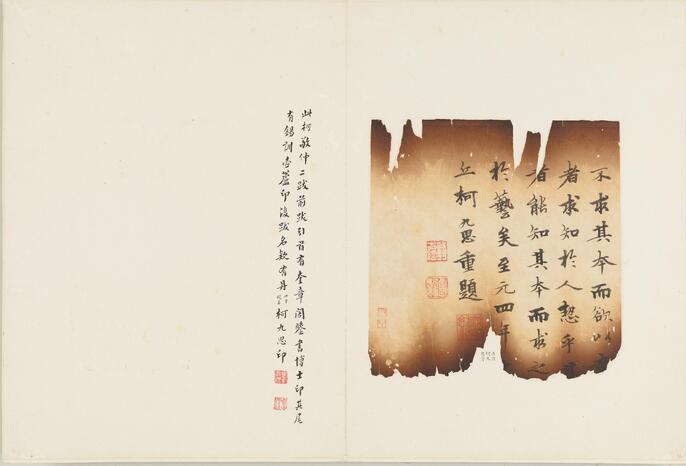 不求其本而欲以
者求知於人恝乎
者能知其本而求之
於藝矣至元四年
丘柯九思重題
此柯敬仲二跋前跋引首有奎章閣鑒書博士印其尾
有錫訓壺蘆印後跋名款有丹柯九思印